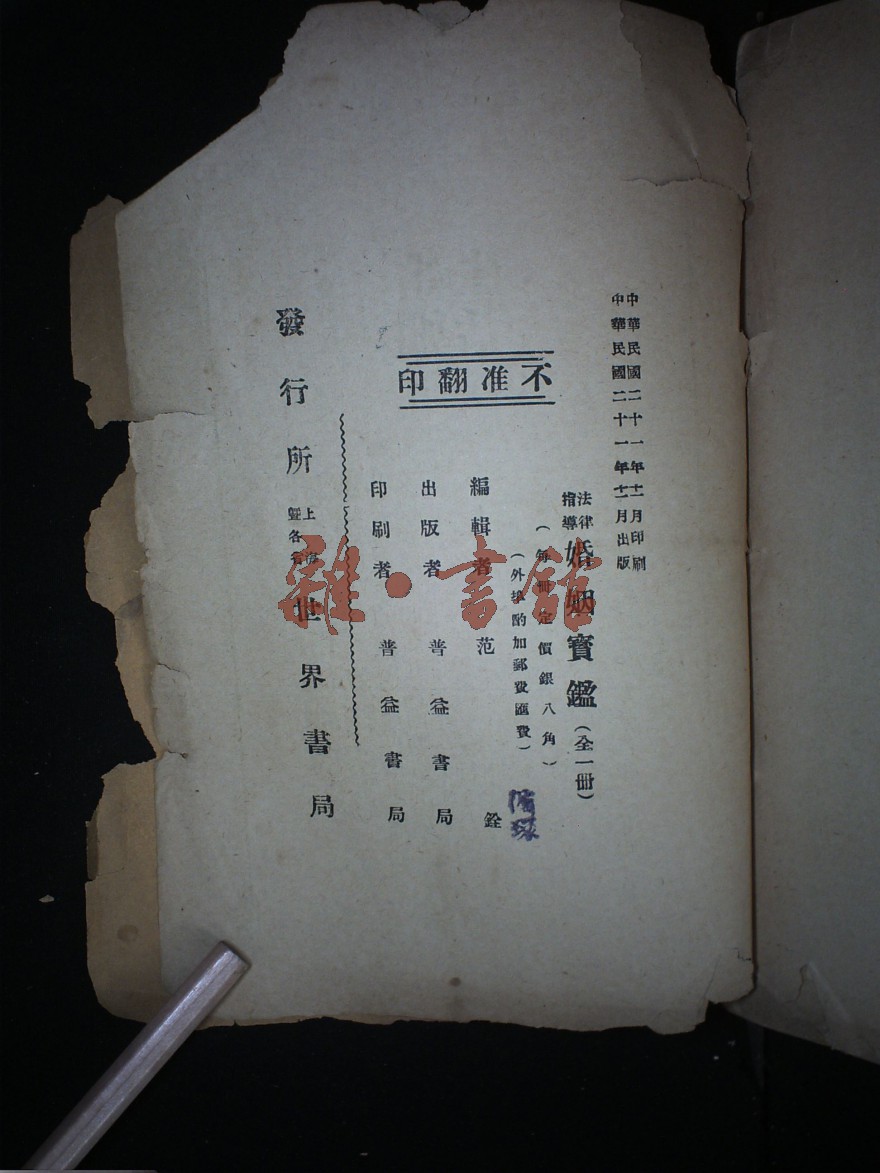 中華民國二十一年十一月印刷
中華民國二十一年十一月出版
法律指導 婚姻寶鑑（全一冊）
（每冊定價銀八角）
（外埠酌加郵費匯費）
不准翻印
編輯者 范 銓
出版者 普益書局
印刷者 普益書局
發行所 上海暨各省 世界書局
雜·書館